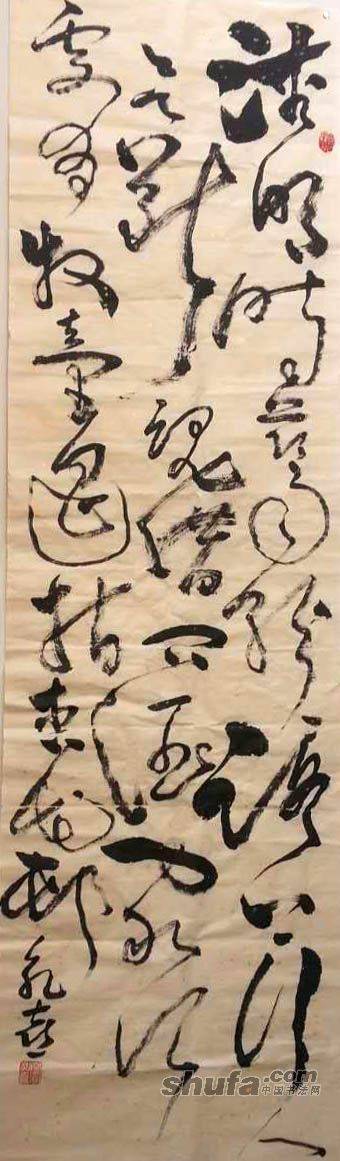 清明时節雨紛紛路上行人
欲斷魂借问酒家何
處有牧童遥指杏花村
shufa.com
中国书法网